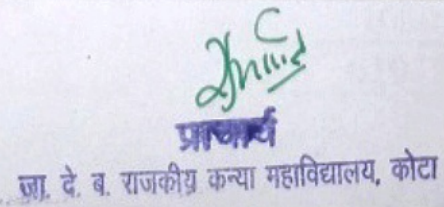 प्राचार्य
जा. दे. ब. राजकीय कन्या महाविद्यालय, कोटा